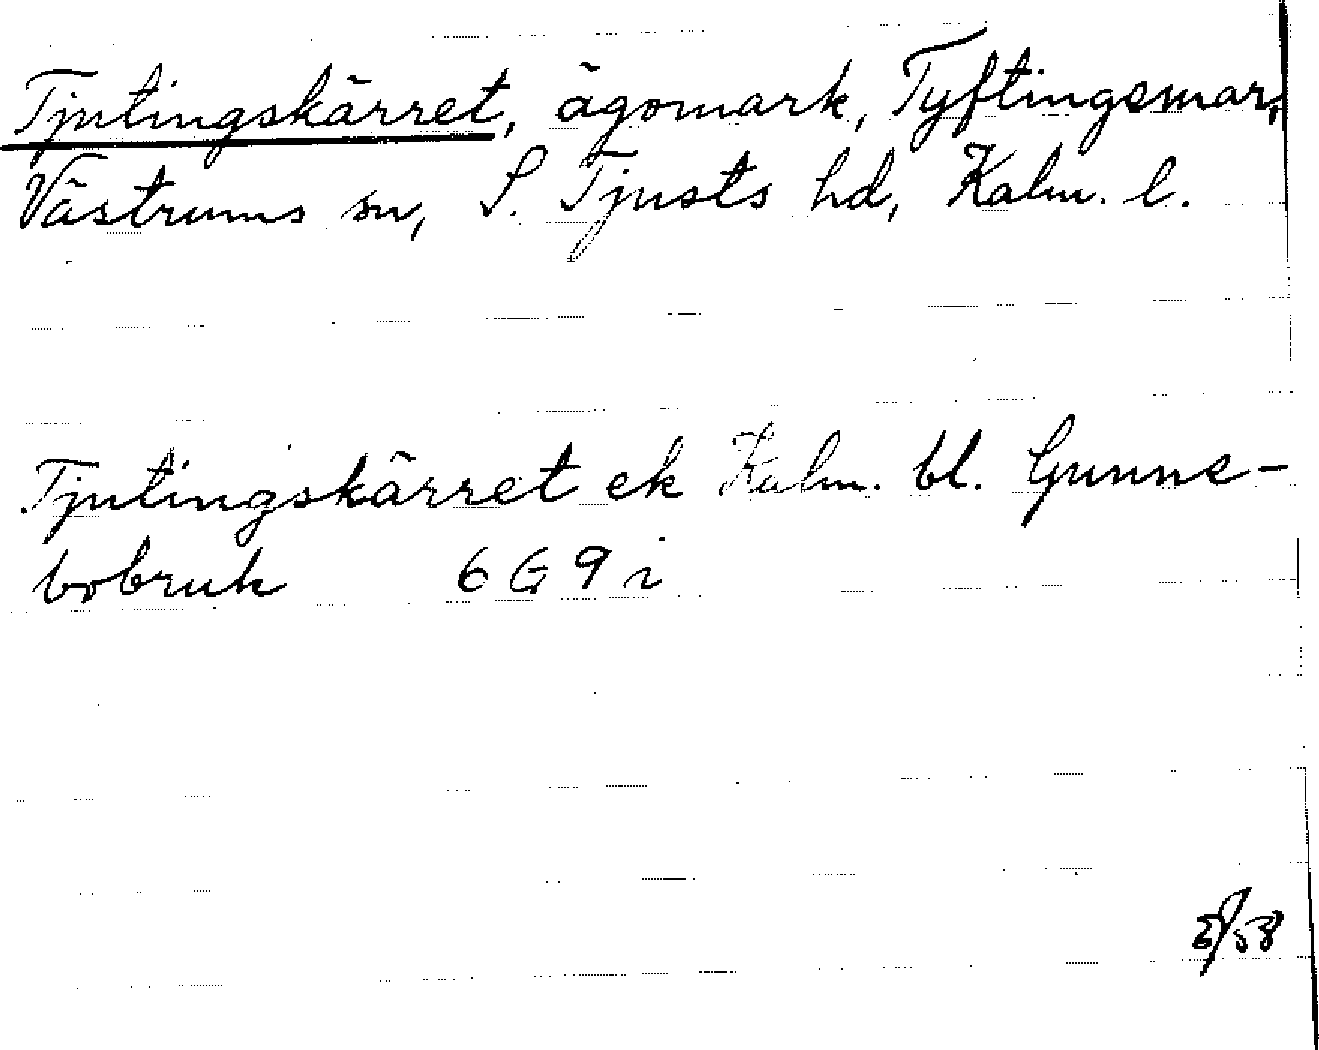 Tjutingskärret, ägomark, Tyftingsmar,
Västrums sn, S. Tjusts hd, Kalm. l.
Tjutingskärret ek Kalm. bl. Gunne-
bobruk 6 G 9 i